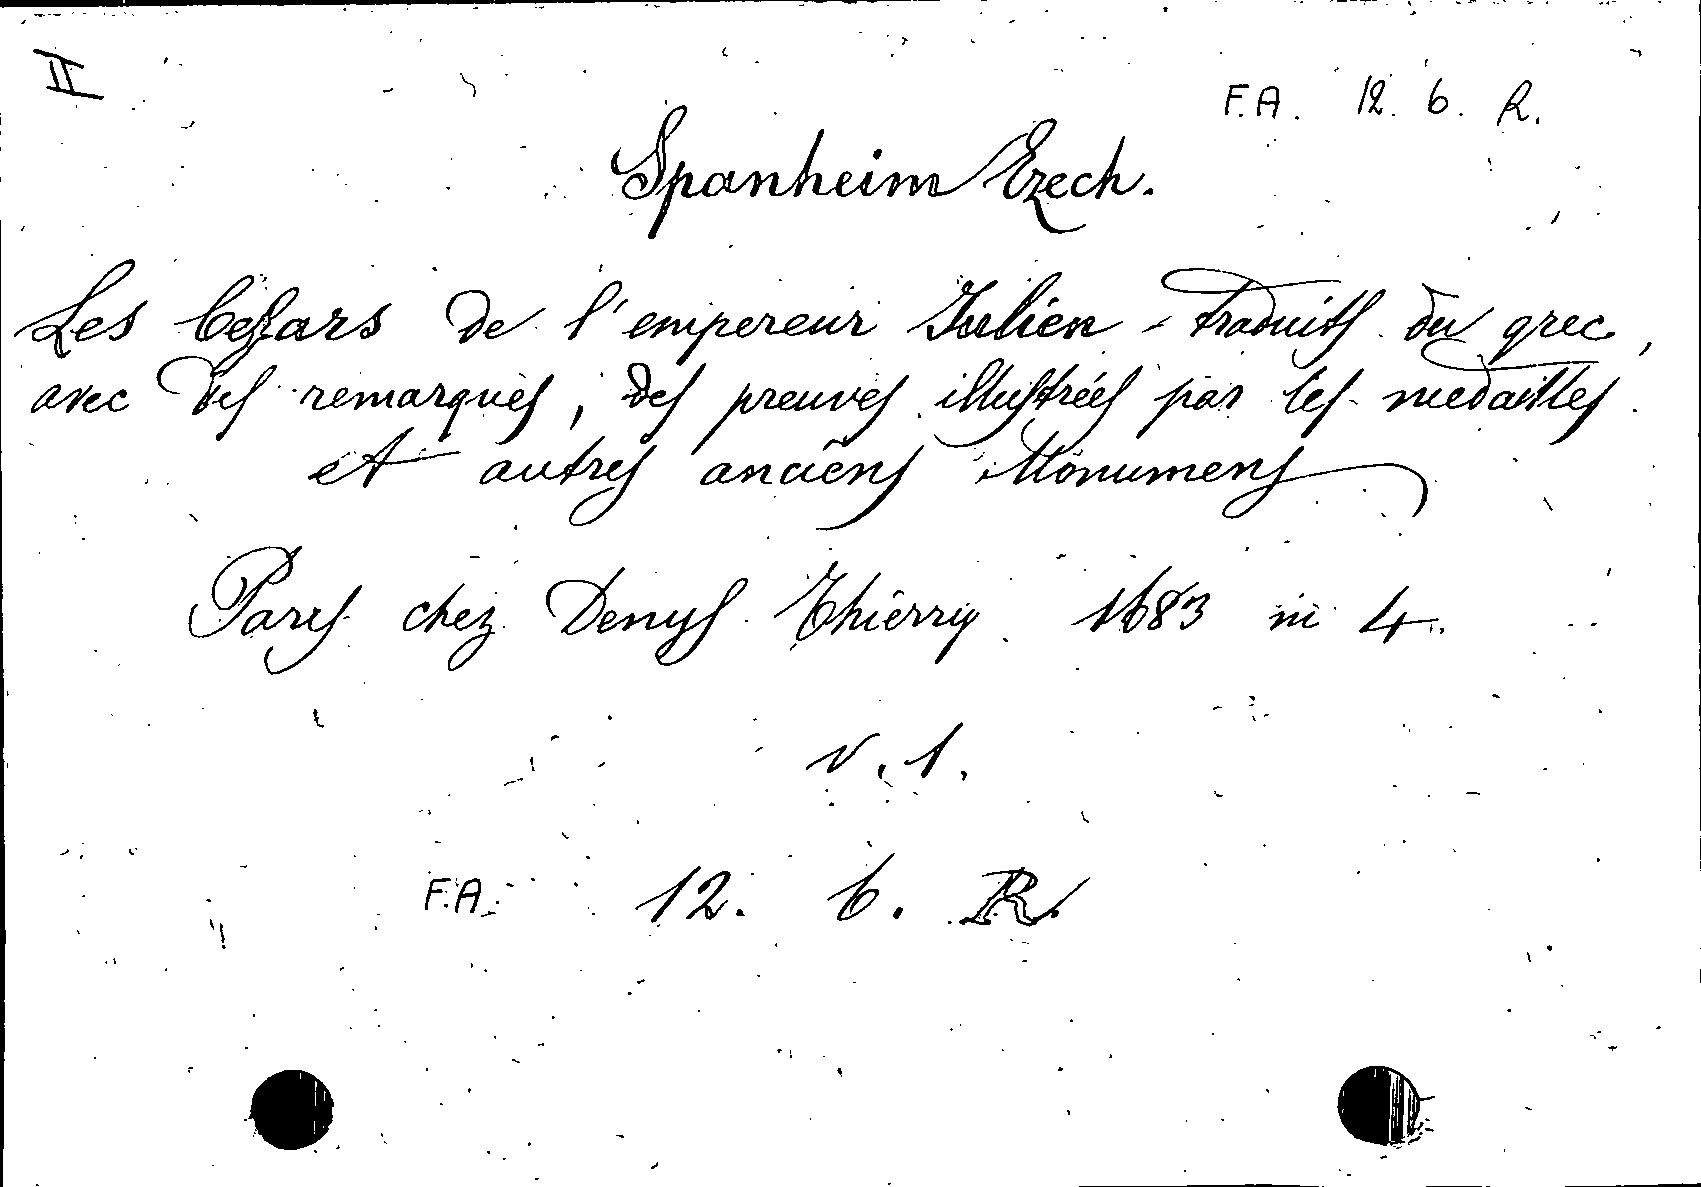 II
F.A. 12. 6. R.
Spanheim Ezech.
Les Cesars de l'empereur Julien - traduits du grec,
avec des remarques, des preuves illustrées par les medailles
et autres anciens Monumens
Parys chez Denys Thierry 1683 in 4.
v. 1.
F.A. 12. 6. R.